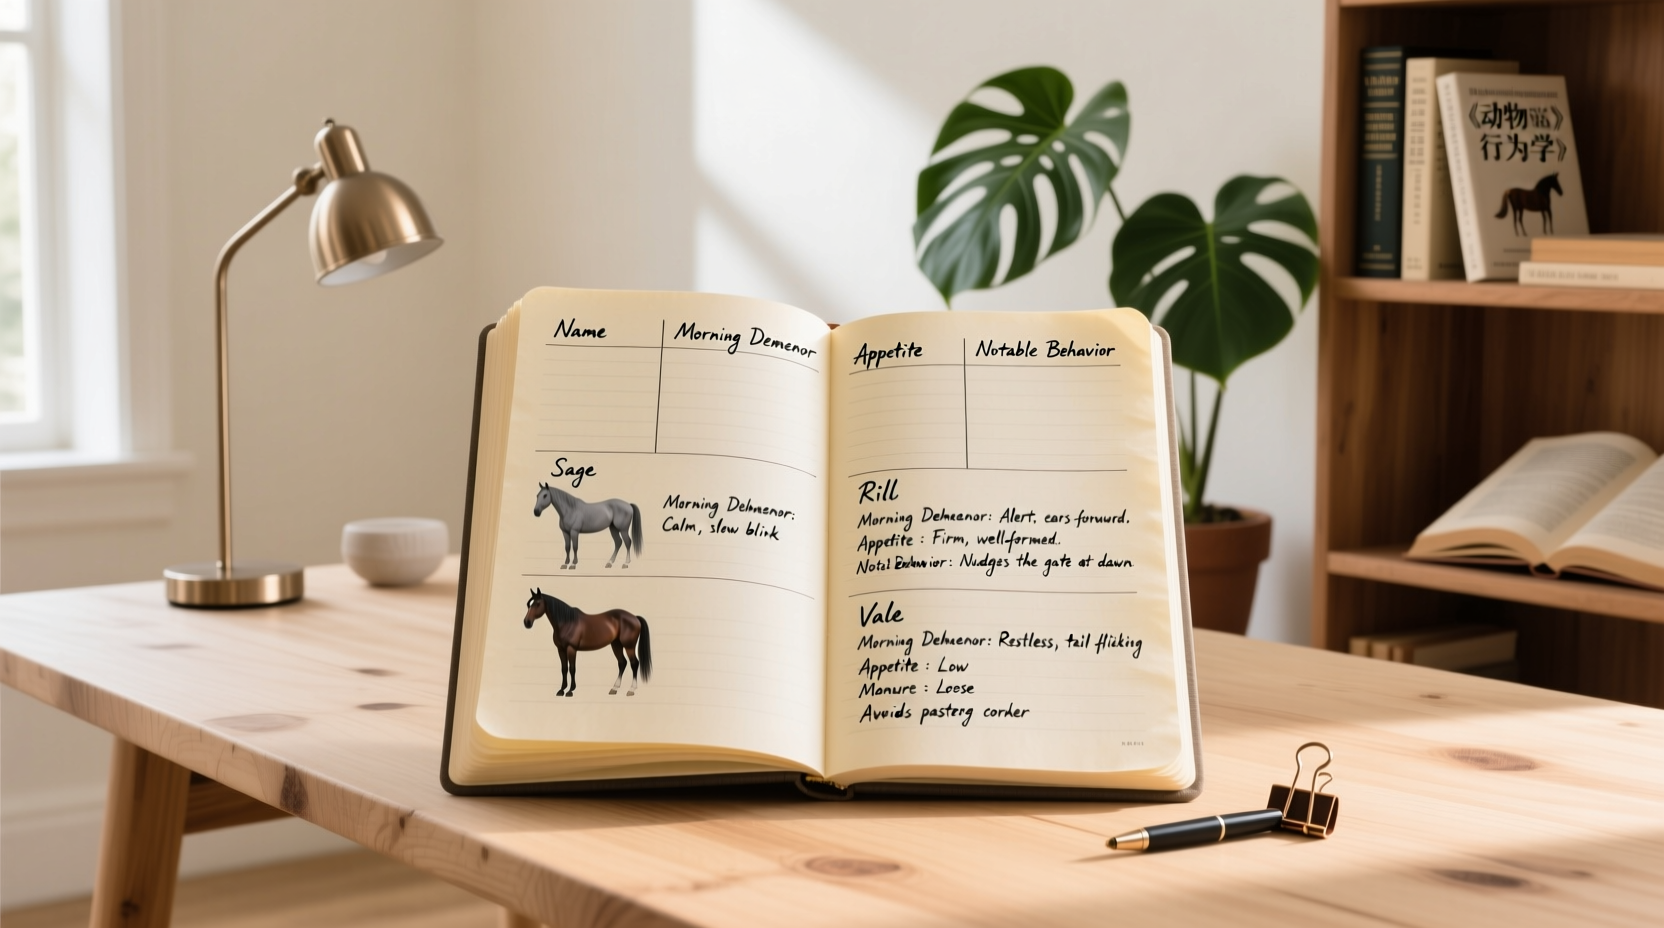 Name
Morning Demenor
Sage
Morning Dehmenor:
Calm, slew blink
Appetite
Notable Behavior
Rill
Morning Dehmeanor: Alert, ears forward.
Appetite : Firm, well-formed.
Behavior: Nudges the gate at dawn
Vale
Morning Dehmenor: Restless, tail fliking
Appetite : Low
Manure : Loose
Avoids corder
《动物
行为学》